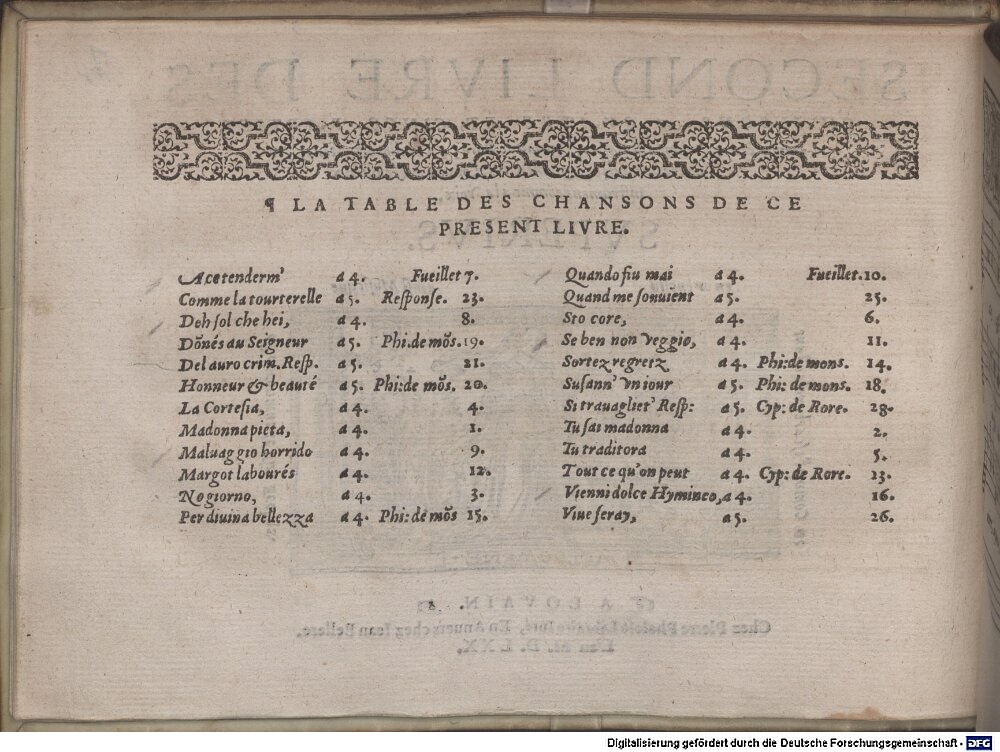 ¶ LA TABLE DES CHANSONS DE CE
PRESENT LIVRE.
Acetenderm' a 4. Fueillet 7.
Comme la tourterelle a 5. Response. 23.
Deh sol che hei, a 4. 8.
Dōnés au Seigneur a 5. Phi.de mōs. 19.
Del auro crim. Resp. a 5. 21.
Honneur & beauté a 5. Phi: de mōs. 20.
La Cortesia, a 4. 4.
Madonna pieta, a 4. 1.
Maluaggio horrido a 4. 9.
Margot labourés a 4. 12.
No giorno, a 4. 3.
Per diuina bellezza a 4. Phi: de mōs 15.
Quando fiu mai a 4. Fueillet. 10.
Quand me souuient a 5. 25.
Sto core, a 4. 6.
Se ben non veggio, a 4. 11.
Sortez regretz a 4. Phi: de mons. 14.
Susann' vn iour a 5. Phi: de mons. 18.
Si trauagliet' Resp: a 5. Cyp: de Rore. 28.
Tu sai madonna a 4. 2.
Tu traditora a 4. 5.
Tout ce qu'on peut a 4. Cyp: de Rore. 13.
Vienni dolce Hymineo, a 4. 16.
Viue seray, a 5. 26.
SECOND LIVRE DES
A LOVAIN.
Chez Pierre Phalese Libraire Iuré, En Anuers chez Iean Bellere.
L'an M. D. LXX.
Digitalisierung gefördert durch die Deutsche Forschungsgemeinschaft - DFG